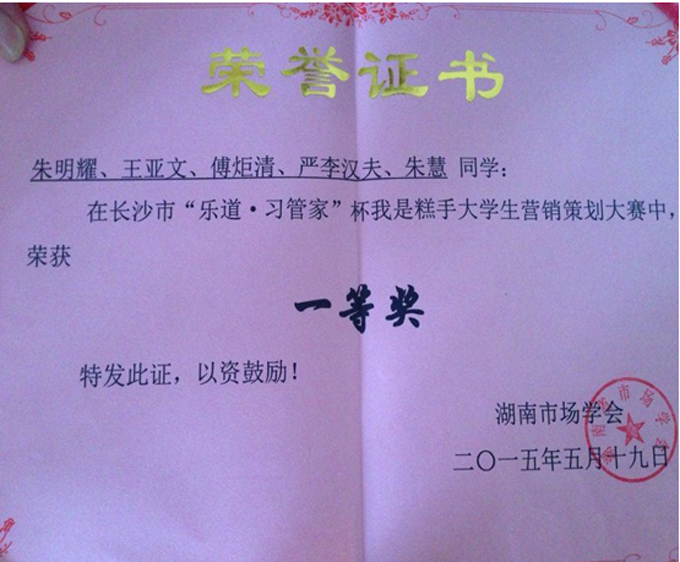 荣誉证书
朱明耀、王亚文、傅炬清、严李汉夫、朱慧 同学：
在长沙市“乐道·习管家”杯我是糕手大学生营销策划大赛中，
荣获
一等奖
特发此证，以资鼓励！
湖南市场学会
二〇一五年五月十九日
湖南省市场学会